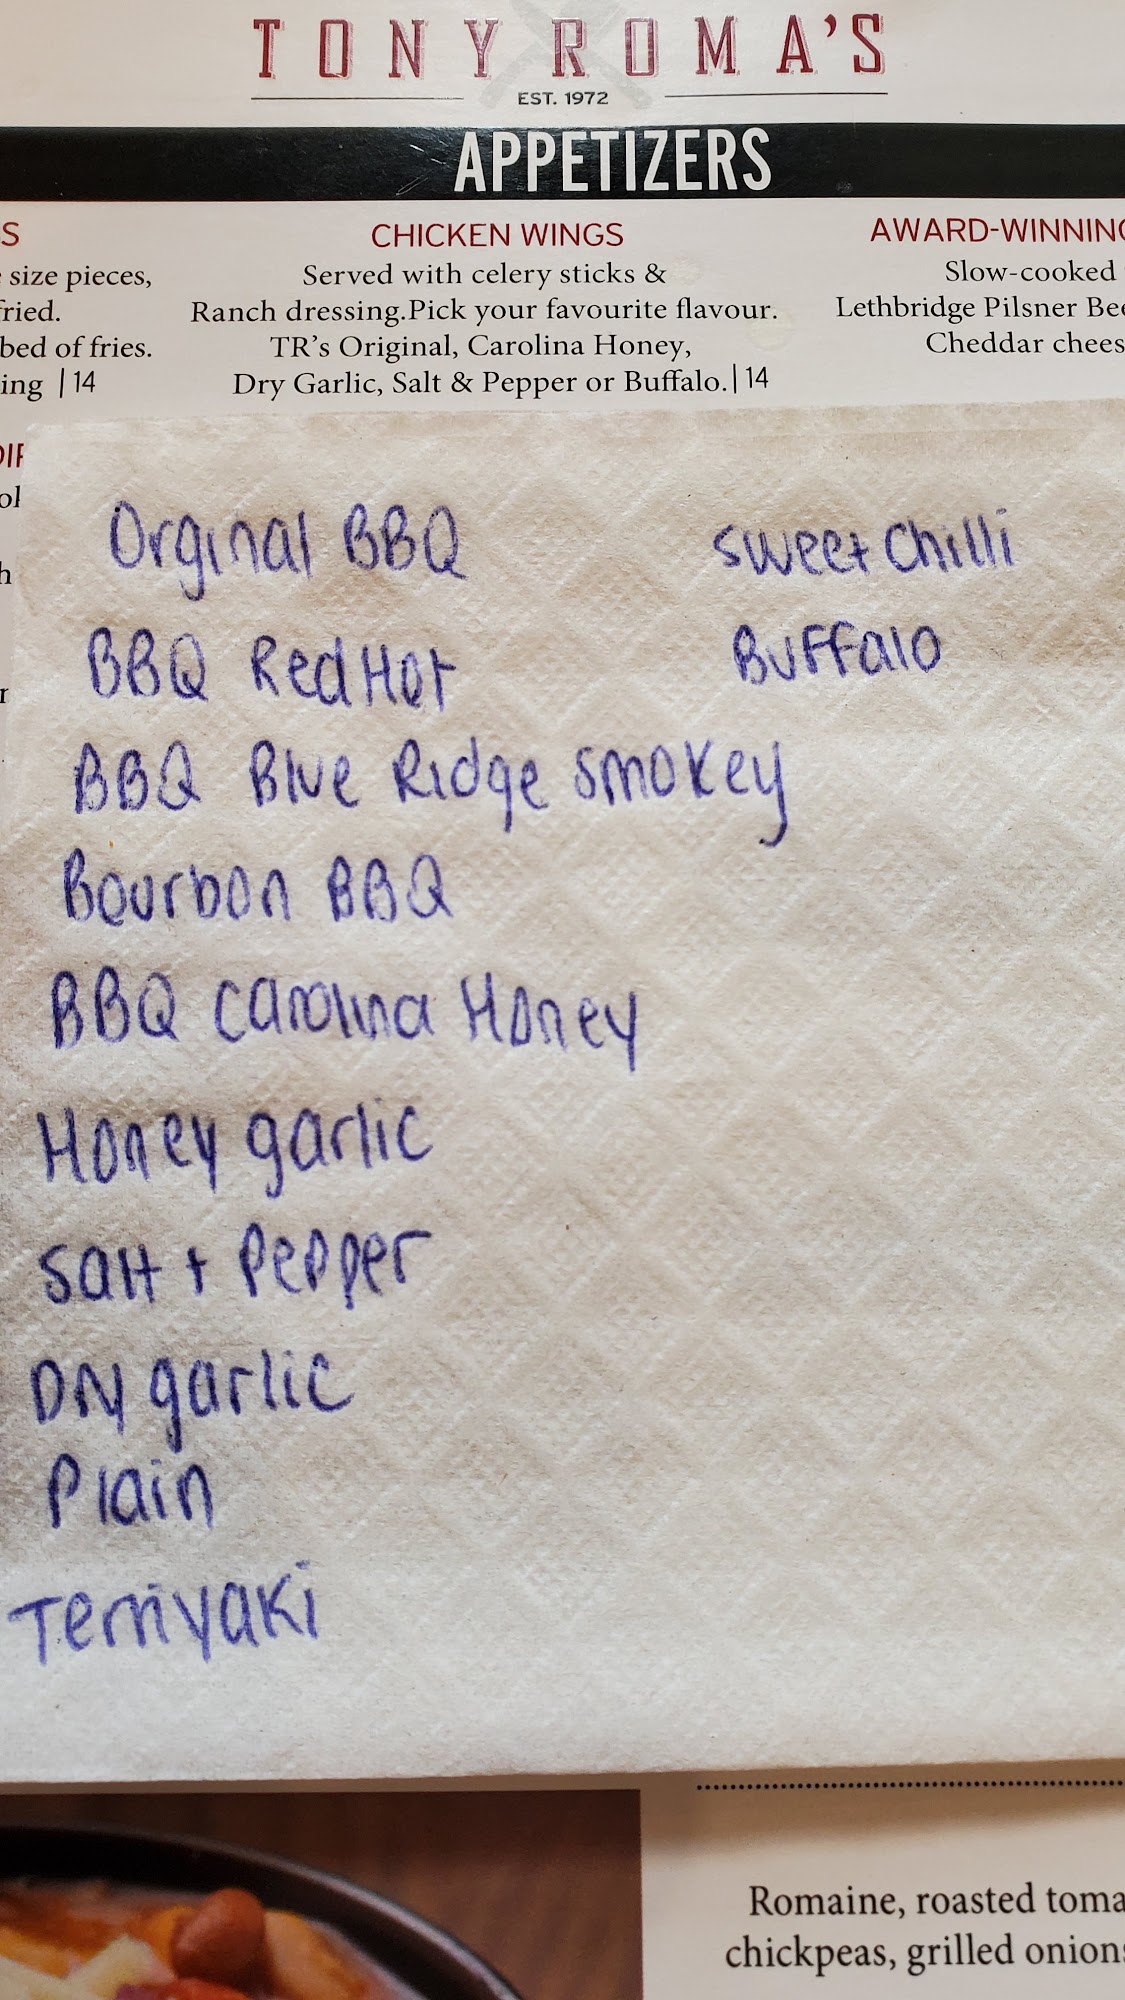 TONY ROMA'S
EST. 1972
APPETIZERS
S
size pieces,
fried.
bed of fries.
ing | 14
CHICKEN WINGS
Served with celery sticks &
Ranch dressing.Pick your favourite flavour.
TR's Original, Carolina Honey,
Dry Garlic, Salt & Pepper or Buffalo.| 14
AWARD-WINNING
Slow-cooked
Lethbridge Pilsner Bee
Cheddar chees
Orginal BBQ
BBQ Red Hot
BBQ Blue Ridge smokey
Bourbon BBQ
BBQ Carolina Honey
Honey garlic
Salt + Pepper
Dry garlic
Plain
Terriyaki
Sweet Chilli
Buffalo
Romaine, roasted toma
chickpeas, grilled onions